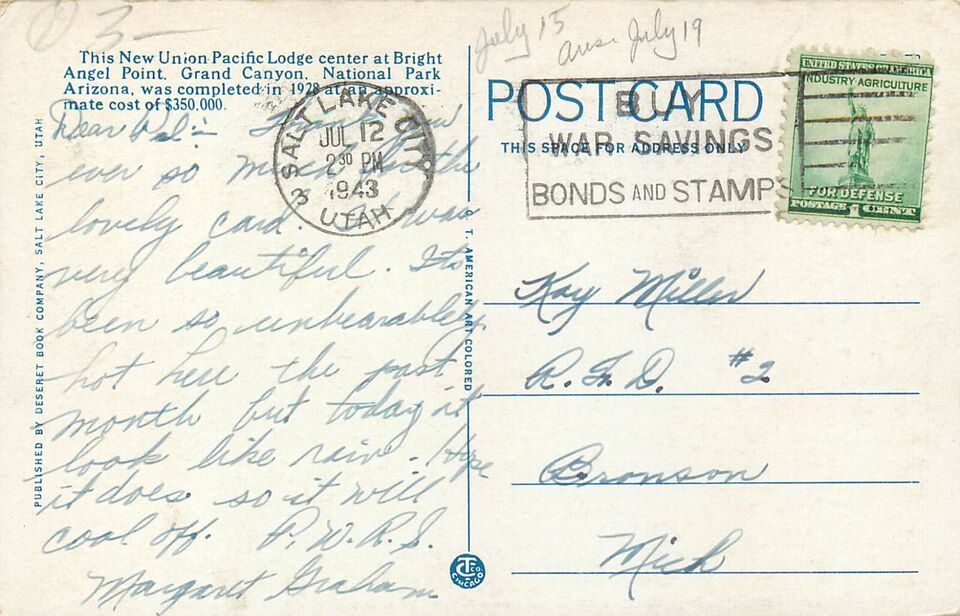 3-
July 15
ans. July 19
This New Union Pacific Lodge center at Bright
Angel Point, Grand Canyon, National Park
Arizona, was completed in 1928 at an approxi-
mate cost of $350,000.
Dear Pal:- Thank you
ever so much for the
lovely card. It was
very beautiful. Its
been so unbearabley
hot here the past
month but today it
look like rain. Hope
it does so it will
cool off. P.W.R.S.
Margaret Graham
PUBLISHED BY DESERET BOOK COMPANY, SALT LAKE CITY, UTAH
SALT LAKE CITY
JUL 12
2 30 PM
1943
UTAH
3
C. T. AMERICAN ART COLORED
CT CO
CHICAGO
POST CARD
THIS SPACE FOR ADDRESS ONLY
BUY
WAR SAVINGS
BONDS AND STAMPS
UNITED STATES OF AMERICA
INDUSTRY AGRICULTURE
FOR DEFENSE
POSTAGE 1 CENT
Kay Miller
R.F.D. #2
Bronson
Mich